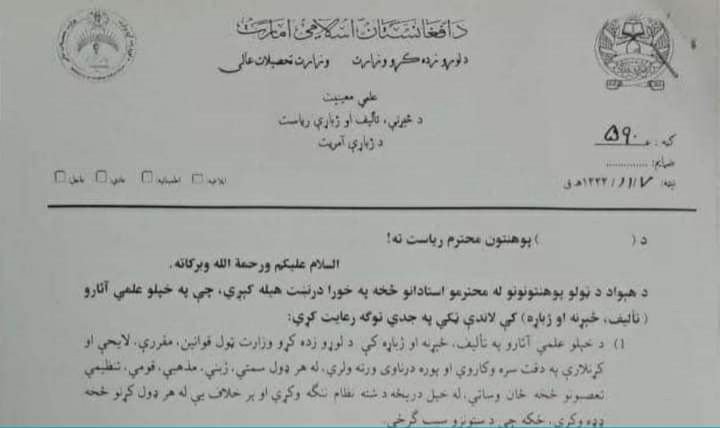 د افغانستان اسلامي امارت
د لوړو زده کړو وزارت وزارت تحصیلات عالی
علمي معینیت
د څېړنې، تألیف او ژباړې ریاست
د ژباړې آمریت
ګڼه: ۵۹۰
ضمایم: ..............
نېټه: ۷ / ۱۱ / ۱۴۴۴هـ ق
اطمینانیه: عادي: عاجل:
د ( ) پوهنتون محترم ریاست ته!
السلام علیکم ورحمة الله وبرکاته.
د هېواد د ټولو پوهنتونونو له محترمو استادانو څخه په خورا درنښت هیله کېږي، چې په خپلو علمي آثارو
( تألیف، څېړنه او ژباړه) کې لاندې ټکي په جدي توګه رعایت کړي:
1) د خپلو علمي آثارو په تألیف، څېړنه او ژباړه کې د لوړو زده کړو وزارت ټول قوانین، مقررې، لایحې او
کړنلارې په دقت سره وکاروي او پوره درناوی ورته ولري، له هر ډول سمتي، ژبني، مذهبي، قومي، تنظیمي
تعصبونو څخه ځان وساتي، له خپل دریځه د شته نظام ننګه وکړي او پر خلاف یې له هر ډول کړنو څخه
ډډه وکړي، ځکه چې د ستونزو سبب ګرځي.